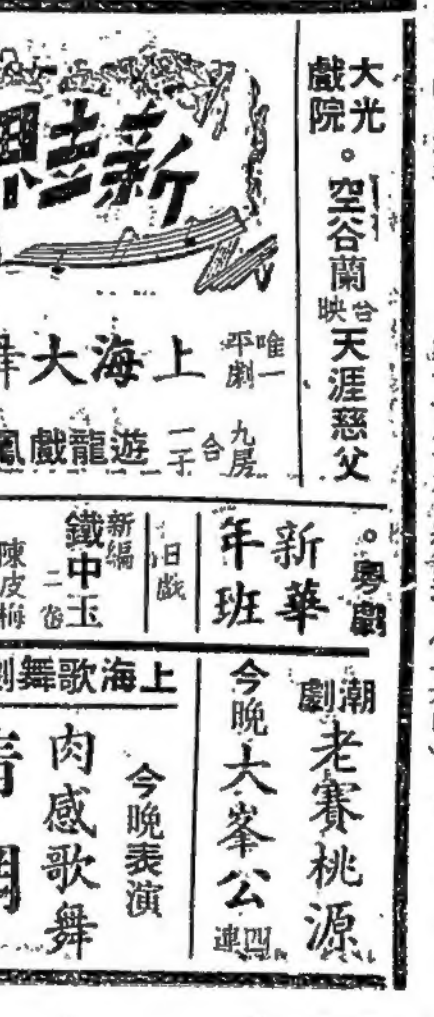 大光戲院。空谷蘭台映天涯慈父
新
唯一平劇
上海大
九房合一子
遊龍戲鳳
。粵劇
新華年班
日戲
新編鐵中玉二卷
陳皮梅
潮劇老賽桃源
今晚大峯公四連
上海歌舞劇
今晚表演
肉感歌舞